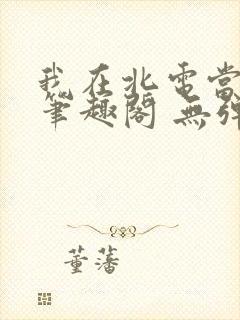 我在北電當
筆趣閣 無彈
董藩